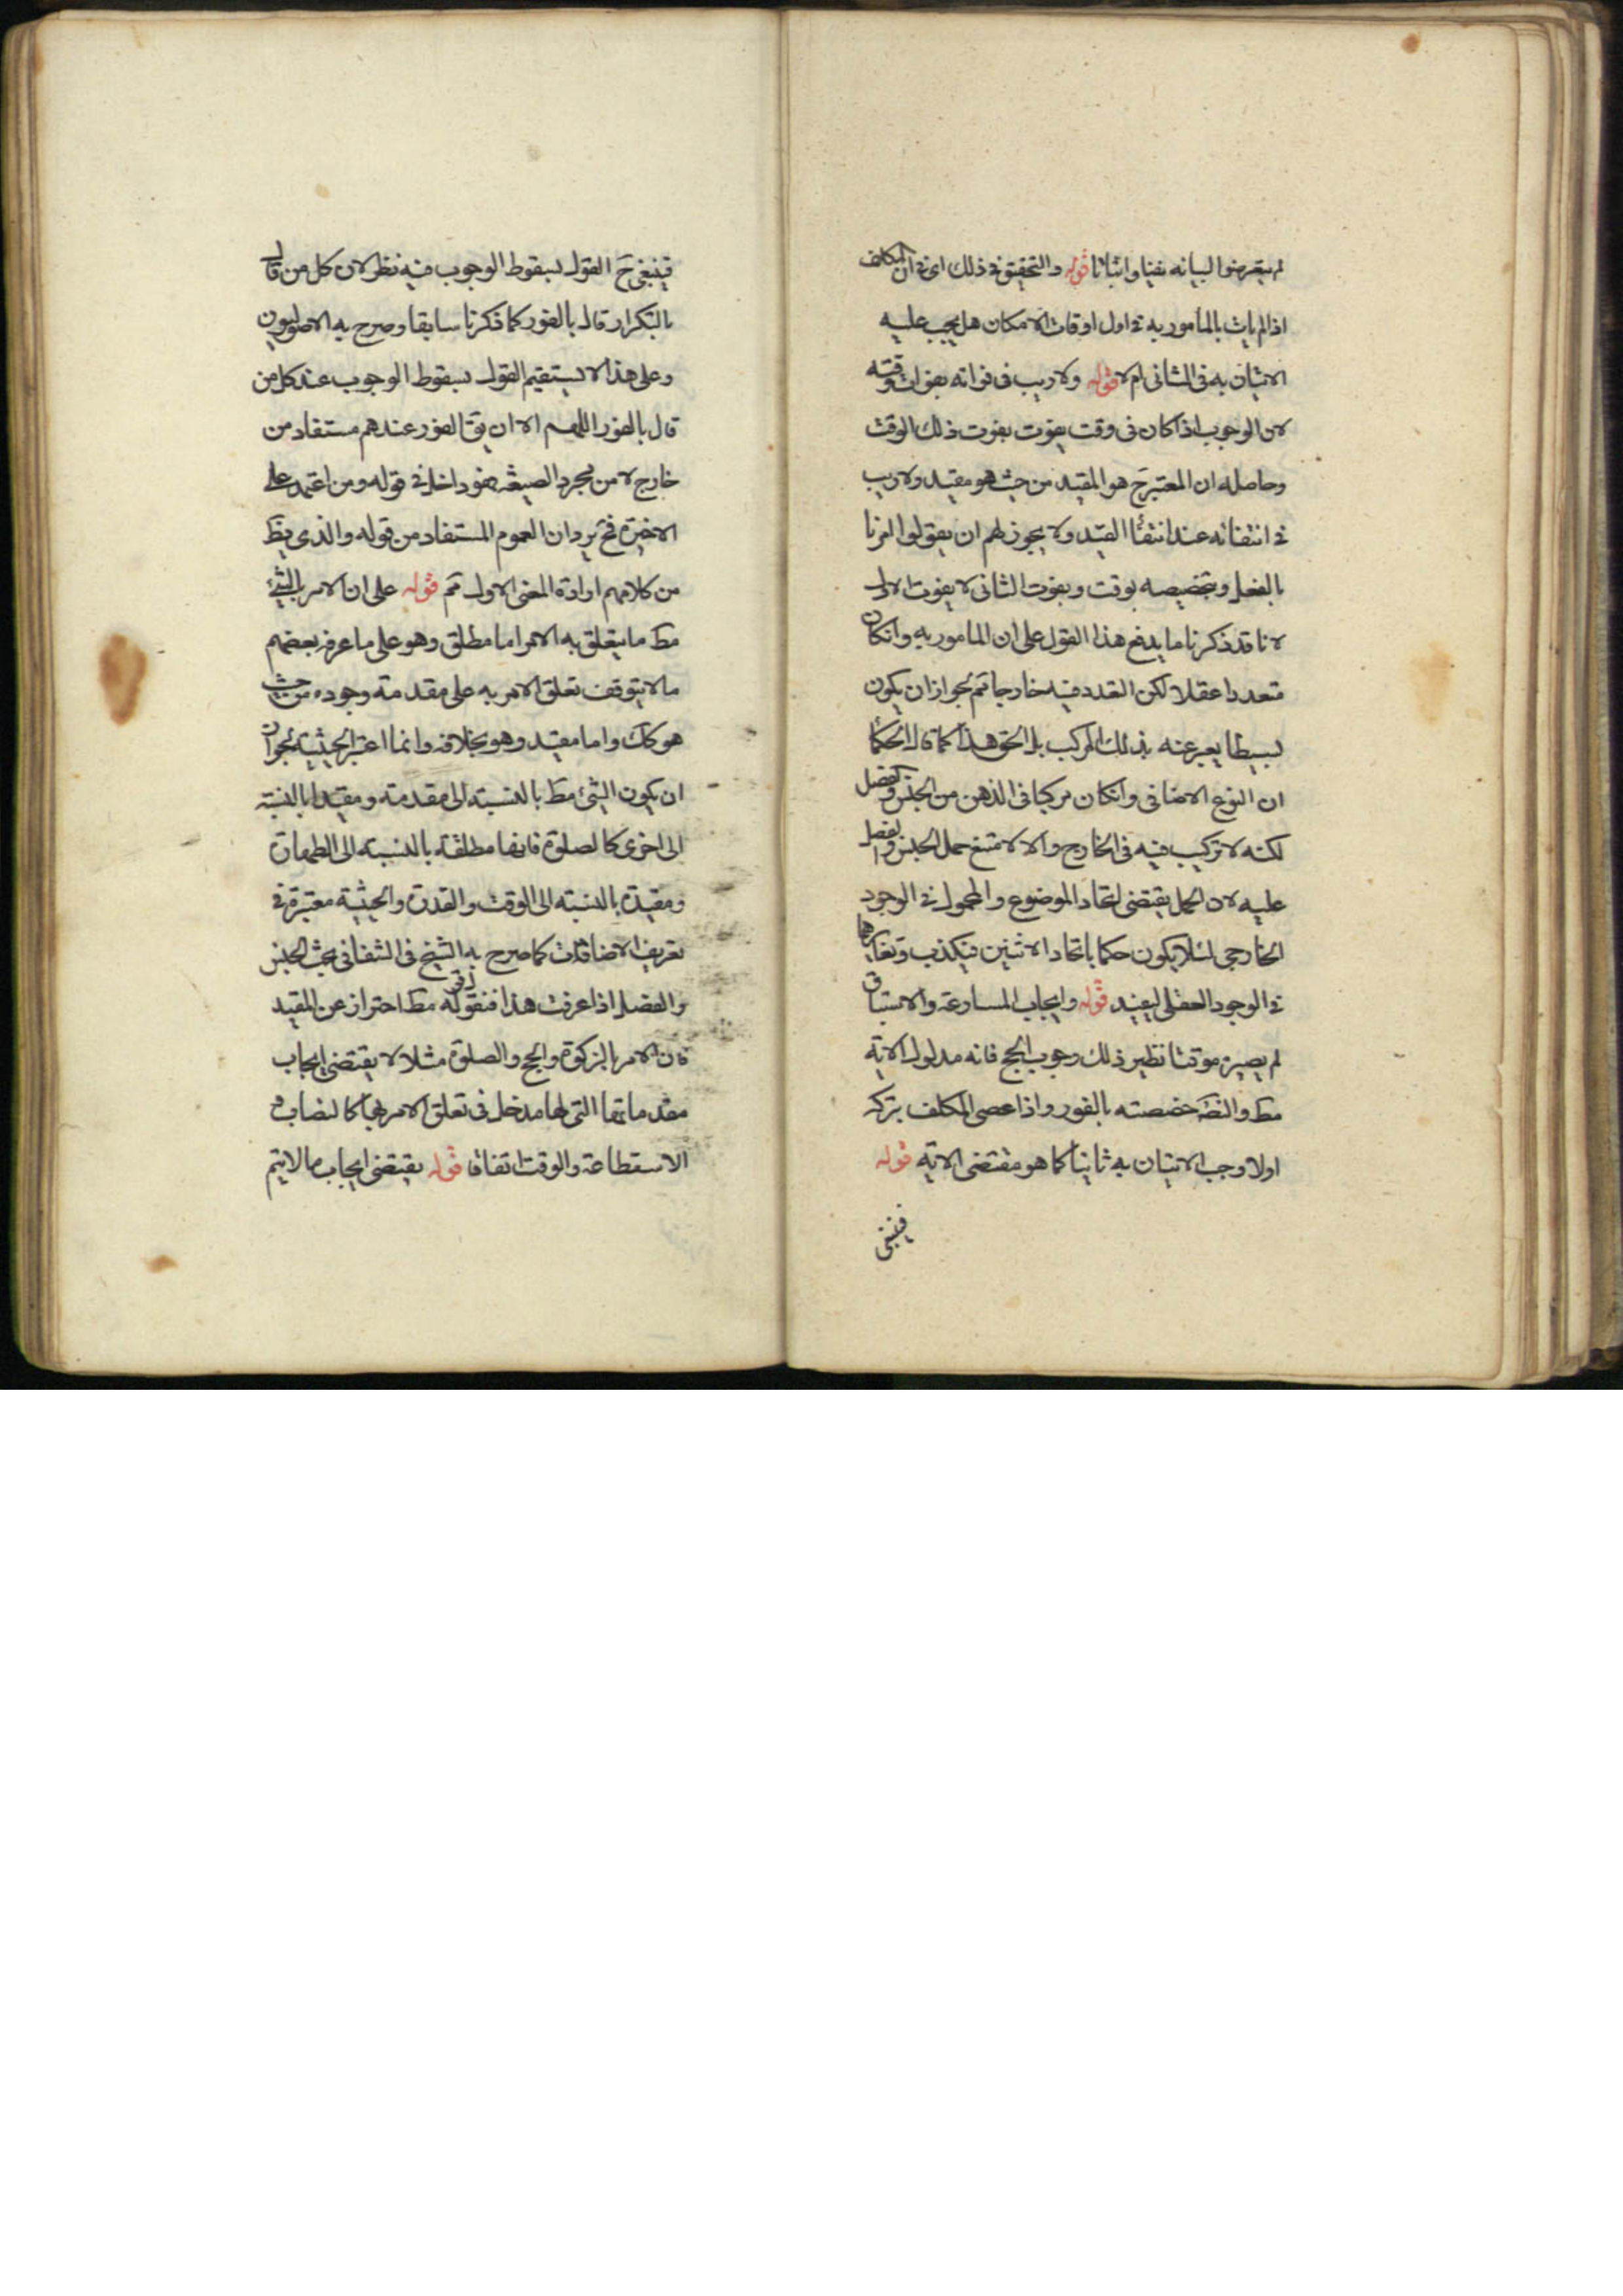 لم يتعرضوا لبيانه نفيا واثباتا قوله والتحقيق في ذلك اى في ان المكلف
اذا لم يات بالمامور به في اول اوقات الامكان هل يجب عليه
الاتيان به في الثانى ام لا قوله ولا ريب في فواته بفوات وقته
لان الوجوب اذا كان في وقت يفوت بفوت ذلك الوقت
وحاصله ان المعتبر ح هو المقيد من حيث هو مقيد ولا ريب
في انتفائه عند انتفاء القيد ولا يجوز لهم ان يقولوا امرنا
بالفعل وبتخصيصه بوقت وبفوت الثانى لا يفوت الاول
لانا قد ذكرنا ما يدفع هذا القول على ان المامور به وانكان
متعددا عقلا لكن التعدد فيه خارجا تم لجواز ان يكون
بسيطا يعبر عنه بذلك المركب بل الحق هذا كما قال الحكما
ان النوع الاضافى وانكان مركبا فى الذهن من الجنس والفصل
لكنه لا تركيب فيه فى الخارج والا لامتنع حمل الجنس والفصل
عليه لان الحمل يقتضى اتحاد الموضوع والمحمول في الوجود
الخارجى لئلا يكون حكما باتحاد الاثنين فيكذب وتغايرهما
في الوجود العقلى ليفيد قوله وايجاب المسارعة والاستباق
لم يصير موقتا نظير ذلك وجوب الحج فانه مدلول الاية
مط والنص خصصته بالفور واذا عصى المكلف بتركه
اولا وجب الاتيان به ثانيا كما هو مقتضى الاية قوله
فينبغى
فينبغى ح القول بسقوط الوجوب فيه نظر لان كل من قال
بالتكرار قال بالفور كما ذكرنا سابقا وصرح به الاصوليون
وعلى هذا لا يستقيم القول بسقوط الوجوب عند كل من
قال بالفور اللهم الا ان يق الفور عندهم مستفاد من
خارج لا من مجرد الصيغة فهو داخل في قوله ومن اعتمد على
الاخيرة فح يرد ان العموم المستفاد من قوله والذى يظ
من كلامهم ارادة المعنى الاول تم قوله على ان الامر بالشئ
مط ما يتعلق به الامر اما مطلق وهو على ما عرفه بعضهم
ما لا يتوقف تعلق الامر به على مقدمة وجوده من حيث
هو كك واما مقيد وهو بخلافه وانما اعتبر الحيثية لجواز
ان يكون الشئ مط بالنسبة الى مقدمته ومقيدا بالنسبة
الى اخرى كالصلوة فانها مطلقة بالنسبة الى الطهارة
ومقيدة بالنسبة الى الوقت والقدرة والحيثية معتبرة في
تعريف الاضافيات كما صرح به الشيخ فى الشفا فى بحث الجنس
والفصل اذا عرفت هذا فنقول قوله مط احتراز عن المقيد
فان الامر بالزكوة والحج والصلوة مثلا لا يقتضى ايجاب
مقدماتها التى لها مدخل فى تعلق الامر بها كالنصاب و
الاستطاعة والوقت اتفاقا قوله يقتضى ايجاب ما لا يتم